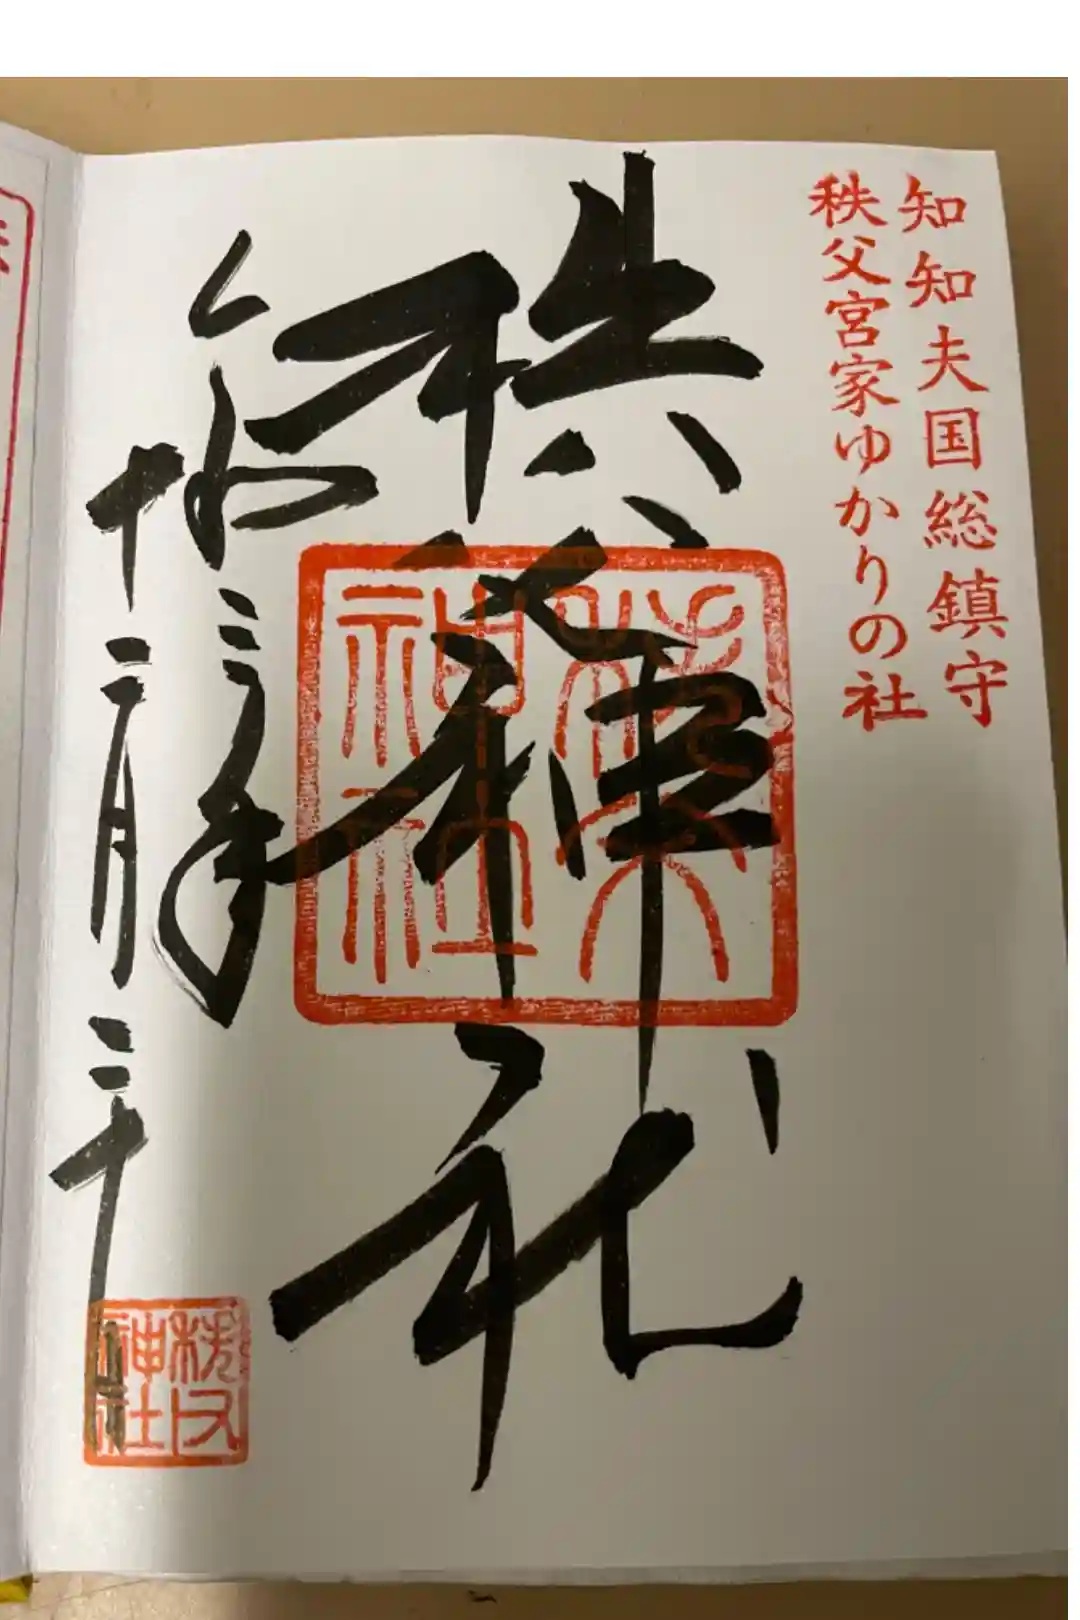 知知夫国総鎮守
秩父宮家ゆかりの社
秩父神社
秩父神社
令和三年
十二月二十日
秩父神社